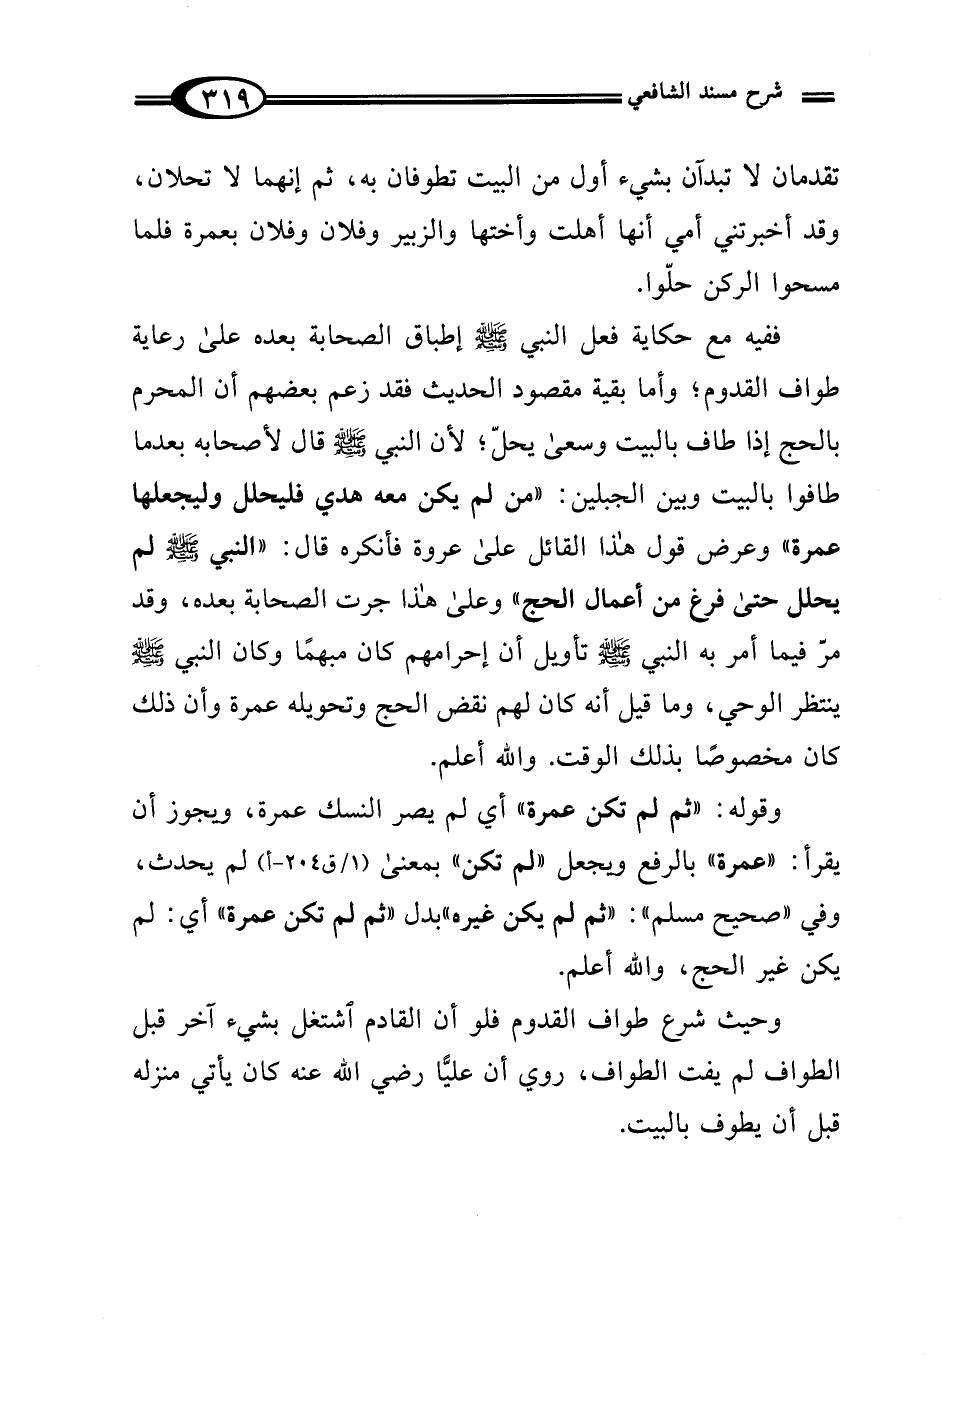 شرح مسند الشافعي ٣١٩
تقدمان لا تبدآن بشيء أول من البيت تطوفان به، ثم إنهما لا تحلان،
وقد أخبرتني أمي أنها أهلت وأختها والزبير وفلان وفلان بعمرة فلما
مسحوا الركن حلّوا.
ففيه مع حكاية فعل النبي ﷺ إطباق الصحابة بعده علىٰ رعاية
طواف القدوم؛ وأما بقية مقصود الحديث فقد زعم بعضهم أن المحرم
بالحج إذا طاف بالبيت وسعىٰ يحلّ؛ لأن النبي ﷺ قال لأصحابه بعدما
طافوا بالبيت وبين الجبلين: «من لم يكن معه هدي فليحلل وليجعلها
عمرة» وعرض قول هذا القائل علىٰ عروة فأنكره قال: «النبي ﷺ لم
يحلل حتىٰ فرغ من أعمال الحج» وعلىٰ هذا جرت الصحابة بعده، وقد
مرّ فيما أمر به النبي ﷺ تأويل أن إحرامهم كان مبهمًا وكان النبي ﷺ
ينتظر الوحي، وما قيل أنه كان لهم نقض الحج وتحويله عمرة وأن ذلك
كان مخصوصًا بذلك الوقت. والله أعلم.
وقوله: «ثم لم تكن عمرة» أي لم يصر النسك عمرة، ويجوز أن
يقرأ: «عمرة» بالرفع ويجعل «لم تكن» بمعنىٰ (١/ق٢٠٤-أ) لم يحدث،
وفي «صحيح مسلم»: «ثم لم يكن غيره»بدل «ثم لم تكن عمرة» أي: لم
يكن غير الحج، والله أعلم.
وحيث شرع طواف القدوم فلو أن القادم ٱشتغل بشيء آخر قبل
الطواف لم يفت الطواف، روي أن عليًّا رضي الله عنه كان يأتي منزله
قبل أن يطوف بالبيت.